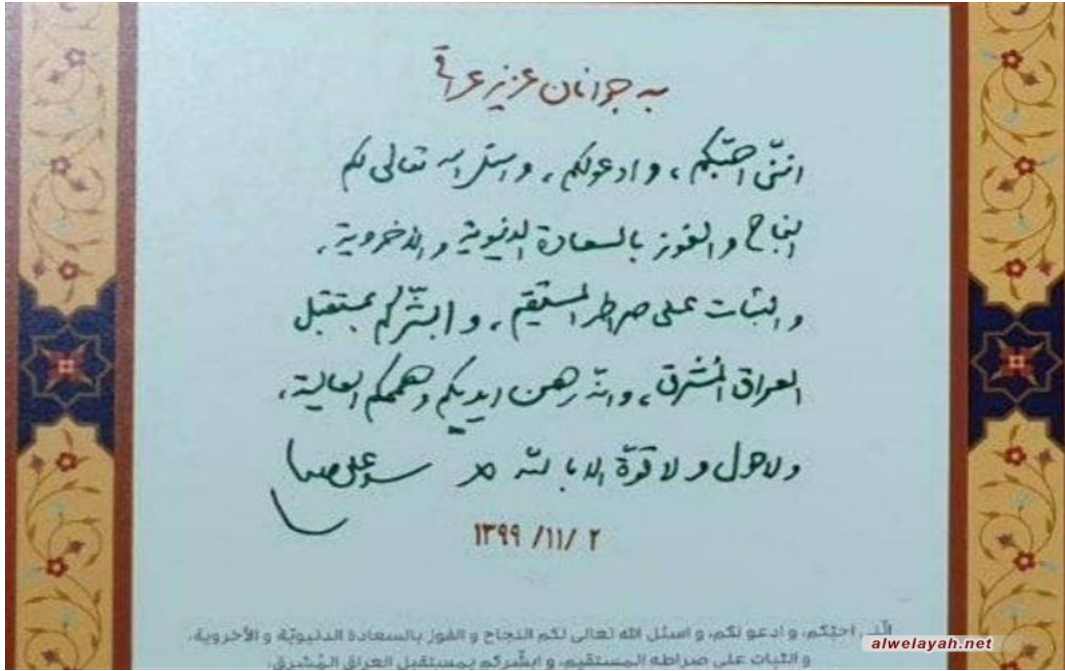 به جوانان عزیز عراقی
انّنی احبّکم، و ادعو لکم، و اسئل الله تعالی لکم
النجاح و الفوز بالسعادة الدنیویة و الاخرویة،
و الثبات علی صراطه المستقیم، و ابشّرکم بمستقبل
العراق المُشرق، و انّه رهن ایدیکم و هممکم العالیة،
ولاحول و لا قوّة الا بالله
۱۳۹۹ /۱۱/ ۲
انّنی احبّکم، و ادعو لکم، و اسئل الله تعالی لکم النجاح و الفوز بالسعادة الدنیویّة و الأخرویة،
و الثبات علی صراطه المستقیم، و ابشّرکم بمستقبل العراق المُشرق،
alwelayah.net